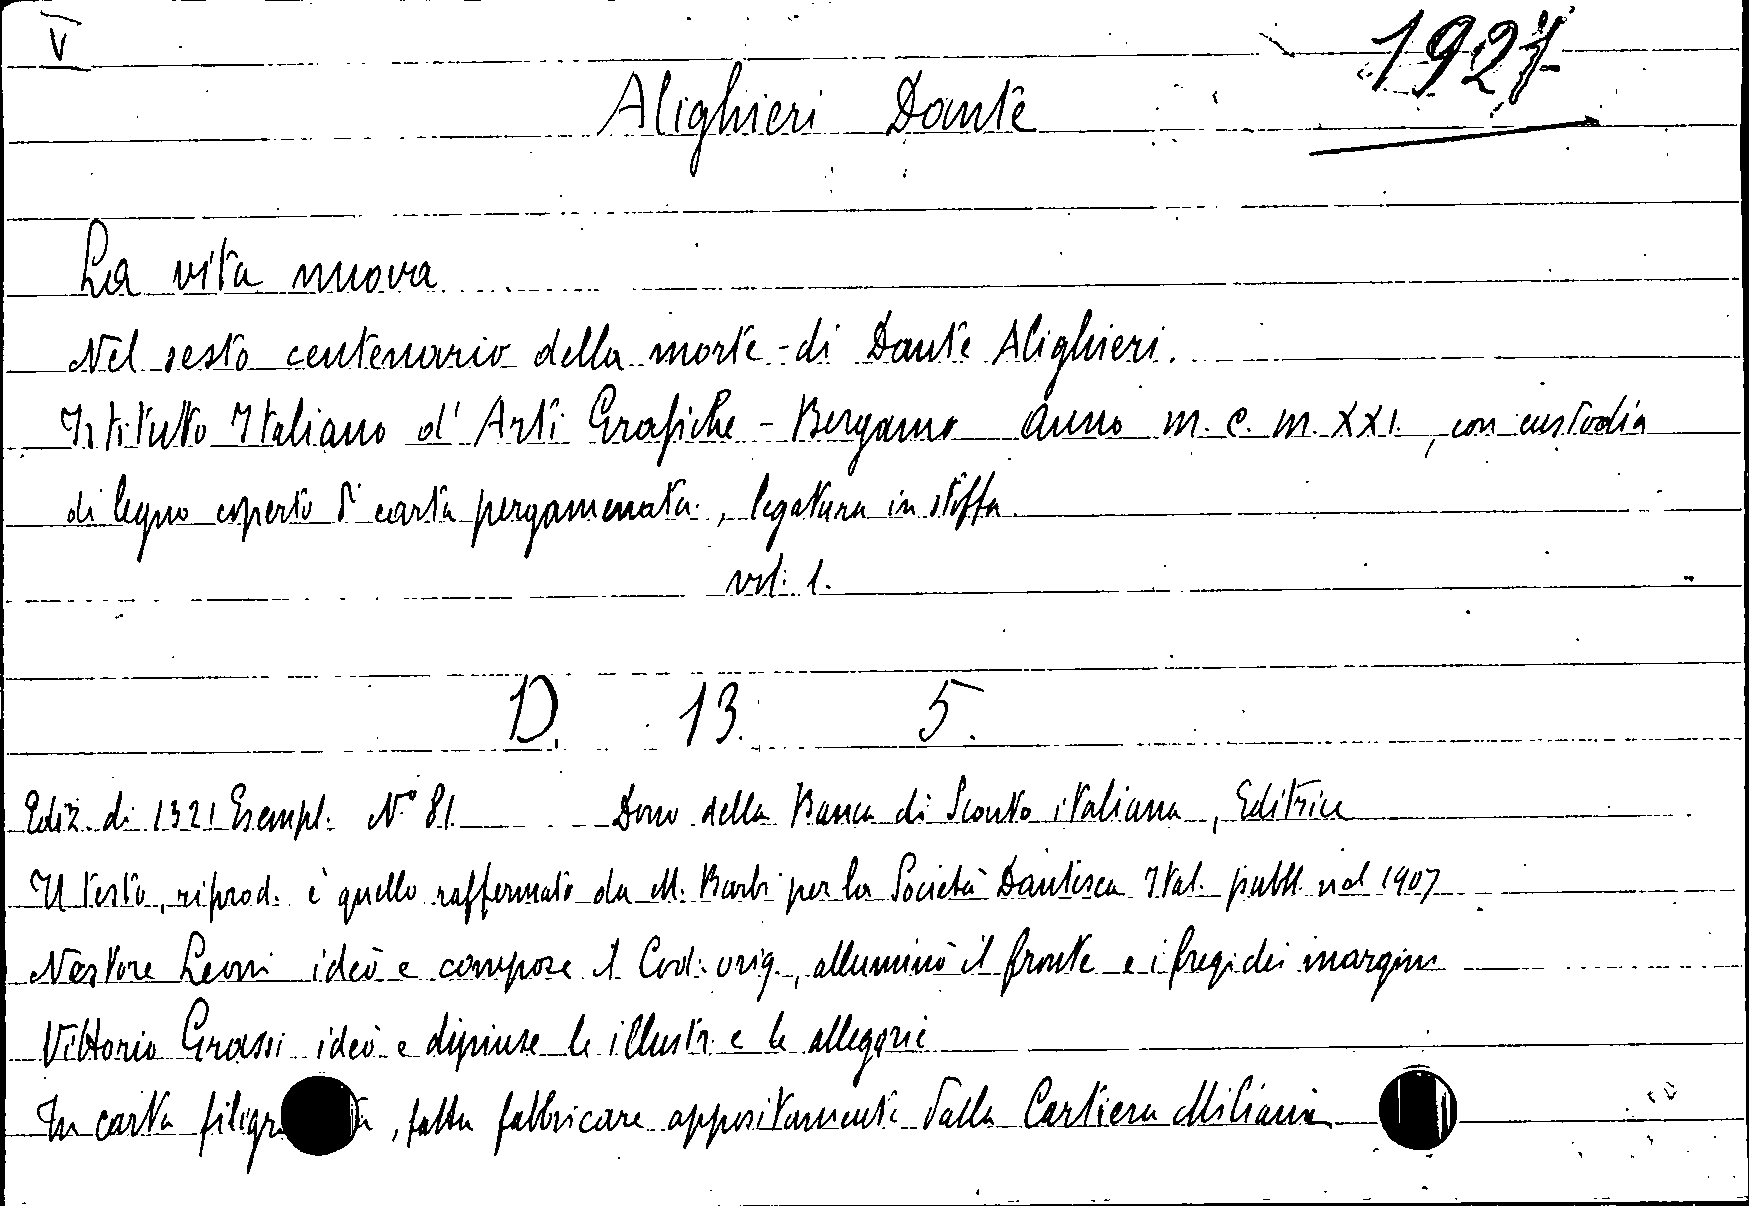 V
1921
Alighieri Dante
La vita nuova
Nel sesto centenario della morte di Dante Alighieri.
Istituto Italiano d'Arti Grafiche - Bergamo Anno M.C.M.XXI., con custodia
di legno coperto di carta pergamenata, legatura in stoffa.
vol: 1.
D. 13. 5.
Ediz. di 1321 Esempl. N° 81. Dono della Banca di Sconto italiana, Editrice
Il testo, riprod. è quello raffermato da M. Barbi per la Società Dantesca Ital. pubbl. nel 1907
Nestore Leoni ideò e compose il Cod. orig., alluminò il fronte e i fregi dei margini
Vittorio Grassi ideò e dipinse le illustr. e le allegorie
In carta filigr ta, fatta fabbricare appositamente dalla Cartiera Miliani